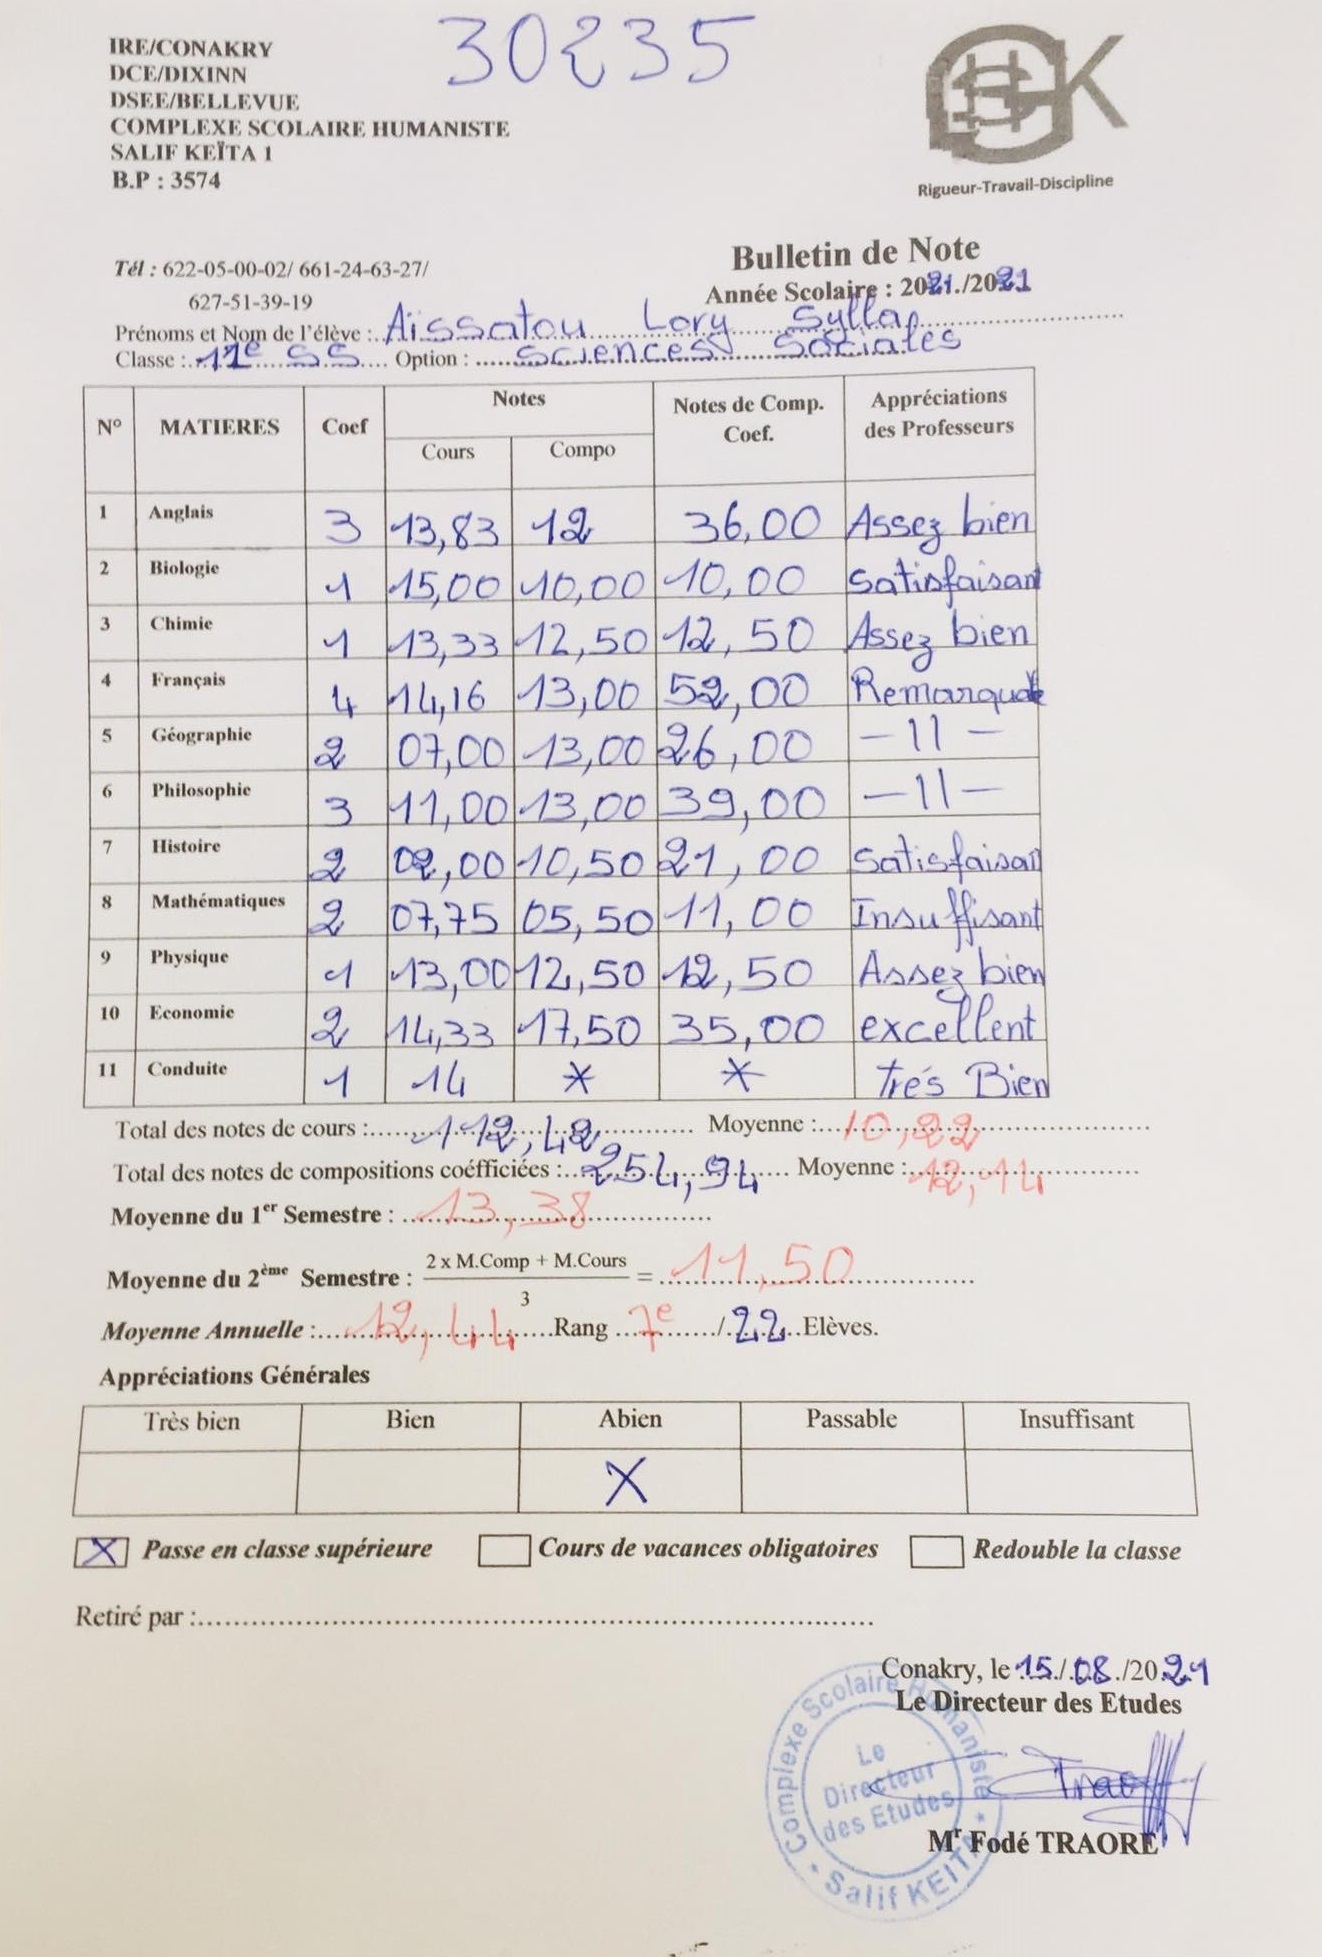 30235
IRE/CONAKRY
DCE/DIXINN
DSEE/BELLEVUE
COMPLEXE SCOLAIRE HUMANISTE
SALIF KEÏTA 1
B.P : 3574
Rigueur-Travail-Discipline
Bulletin de Note
Tél : 622-05-00-02/ 661-24-63-27/
627-51-39-19
Année Scolaire : 2021./2021
Prénoms et Nom de l'élève : Aïssatou Lory Sylla
Classe : 11e SS Option : Sciences Sociales
N° MATIERES Coef Notes Notes de Comp. Coef. Appréciations des Professeurs
Cours Compo
1 Anglais 3 13,83 12 36,00 Assez bien
2 Biologie 1 15,00 10,00 10,00 Satisfaisant
3 Chimie 1 13,33 12,50 12,50 Assez bien
4 Français 4 14,16 13,00 52,00
5 Géographie 2 07,00 13,00 26,00 -11-
6 Philosophie 3 11,00 13,00 39,00 -11-
7 Histoire 2 02,00 10,50 21,00 Satisfaisan
8 Mathématiques 2 07,75 05,50 11,00 Insuffisant
9 Physique 1 13,00 12,50 12,50 Assez bien
10 Economie 2 14,33 17,50 35,00 excellent
11 Conduite 1 14 * * trés Bien
Total des notes de cours : 112,42 Moyenne : 10,22
Total des notes de compositions coéfficiées : 254,94 Moyenne : 12,14
Moyenne du 1er Semestre : 13,38
Moyenne du 2ème Semestre : 2 x M.Comp + M.Cours = 11,50
3
Moyenne Annuelle : 12,44 Rang 7e / 22 Elèves.
Appréciations Générales
Très bien Bien Abien Passable Insuffisant
X
X Passe en classe supérieure Cours de vacances obligatoires Redouble la classe
Retiré par :
Conakry, le 15/08/2021
Le Directeur des Etudes
Complexe Scolaire Humaniste
Le
Directeur
des Etudes
* Salif KEITA *
Mr Fodé TRAORE